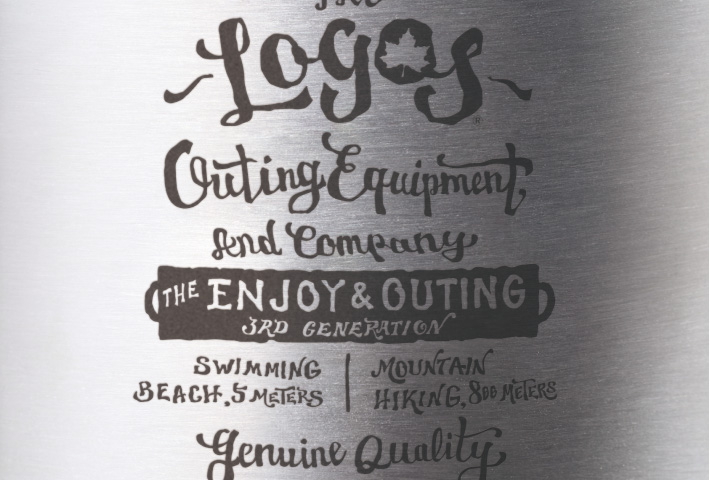 The
Logos
Outing Equipment
And Company
THE ENJOY & OUTING
3RD GENERATION
SWIMMING
BEACH, 5 METERS
MOUNTAIN
HIKING, 800 METERS
Genuine Quality